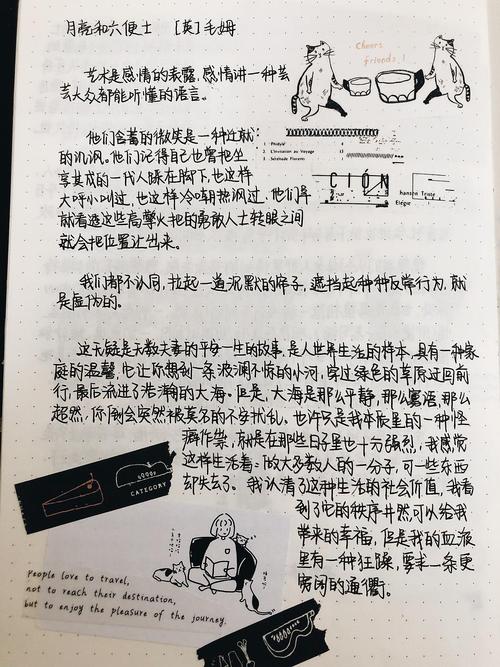 月亮和六便士 [英]毛姆
Cheers
friends!
艺术是感情的表露,感情讲一种芸
芸大众都能听懂的语言。
他们含蓄的微笑是一种迁就
的讥讽。他们记得自己也曾把坐
享其成的一代人踩在脚下,也这样
大呼小叫过,也这样冷嘲热讽过,他们早
就看透这些高擎火把的勇敢人士转眼之间
就会把位置让出来。
1 Phidylé
2 L'Invitation au Voyage
3 Sérénade Florentine
CIÓN
Elégie
我们都不认同,拉起一道沉默的帘子,遮挡起种种反常行为,就
是虚伪的。
这无疑是无数夫妻的平安一生的故事,是人世界生活的样本,具有一种家
庭的温馨,它让你想到一条波澜不惊的小河,穿过绿色的草原迂回前
行,最后流进了浩瀚的大海。但是,大海是那么平静,那么寡语,那么
超然,你刚会突然被莫名的不安扰乱。也许只是我本辰里的一种怪
癖作祟,就是在那些日子里也十分强烈,我感觉
这样生活着,做大多数人的一分子,可一些东西
却失去了。我认清了这种生活的社会价值,我看
到了它的秩序井然可以给我
带来的幸福,但是我的血液
里有一种狂躁,要求一条更
宽阔的通衢。
CATEGORY
People love to travel,
not to reach their destination,
but to enjoy the pleasure of the journey.